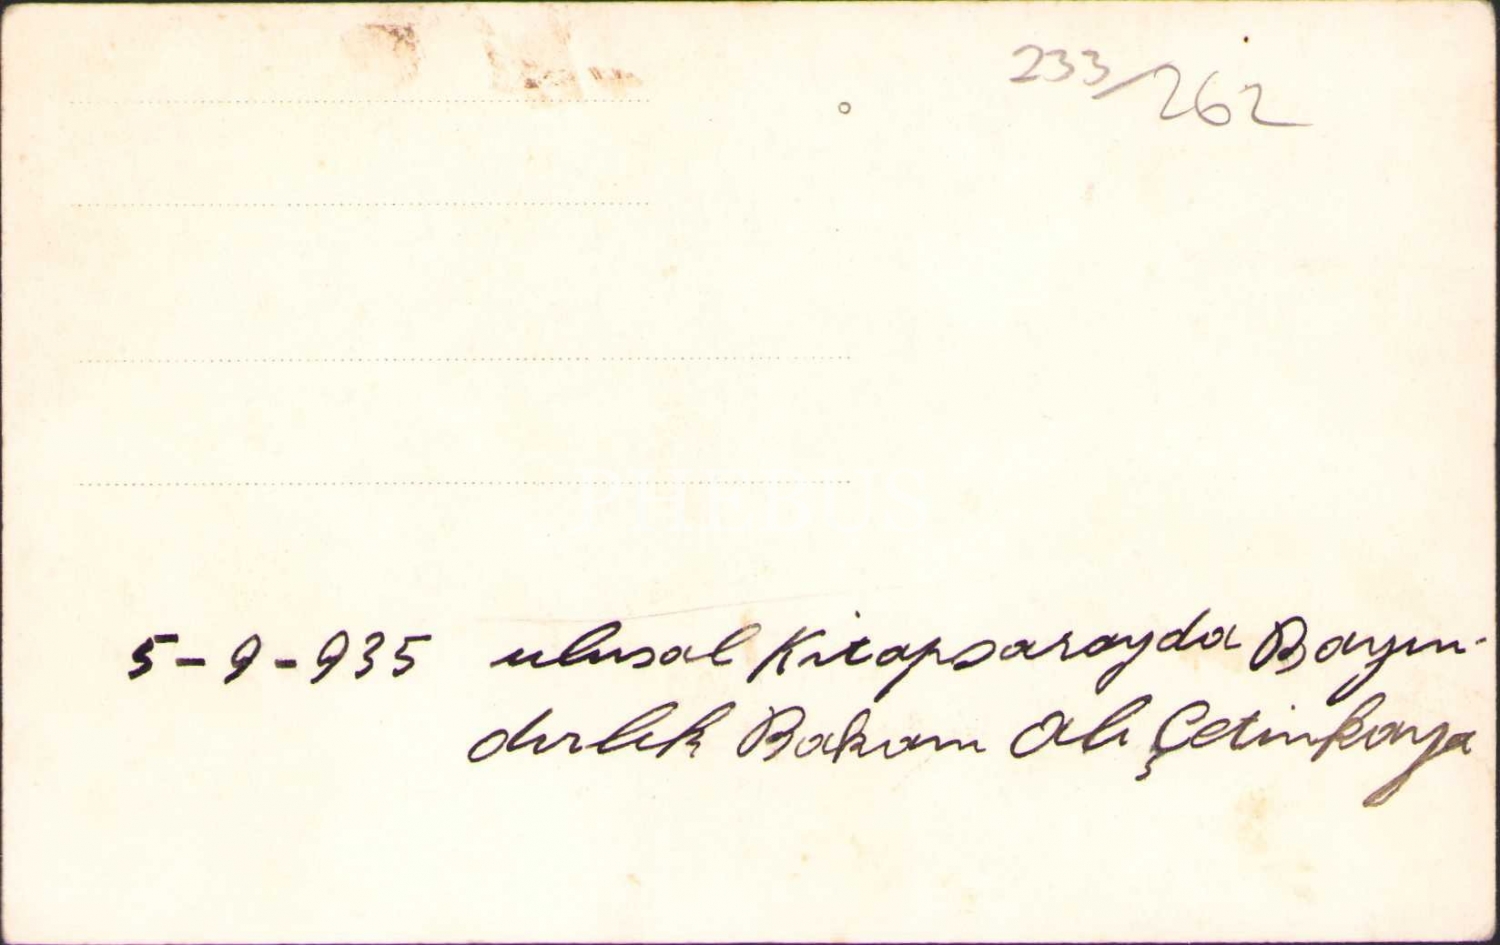 233/262
PHEBUS
5-9-935 ulusal Kitapsarayda Bayın-
dırlık Bakanı Ali Çetinkaya